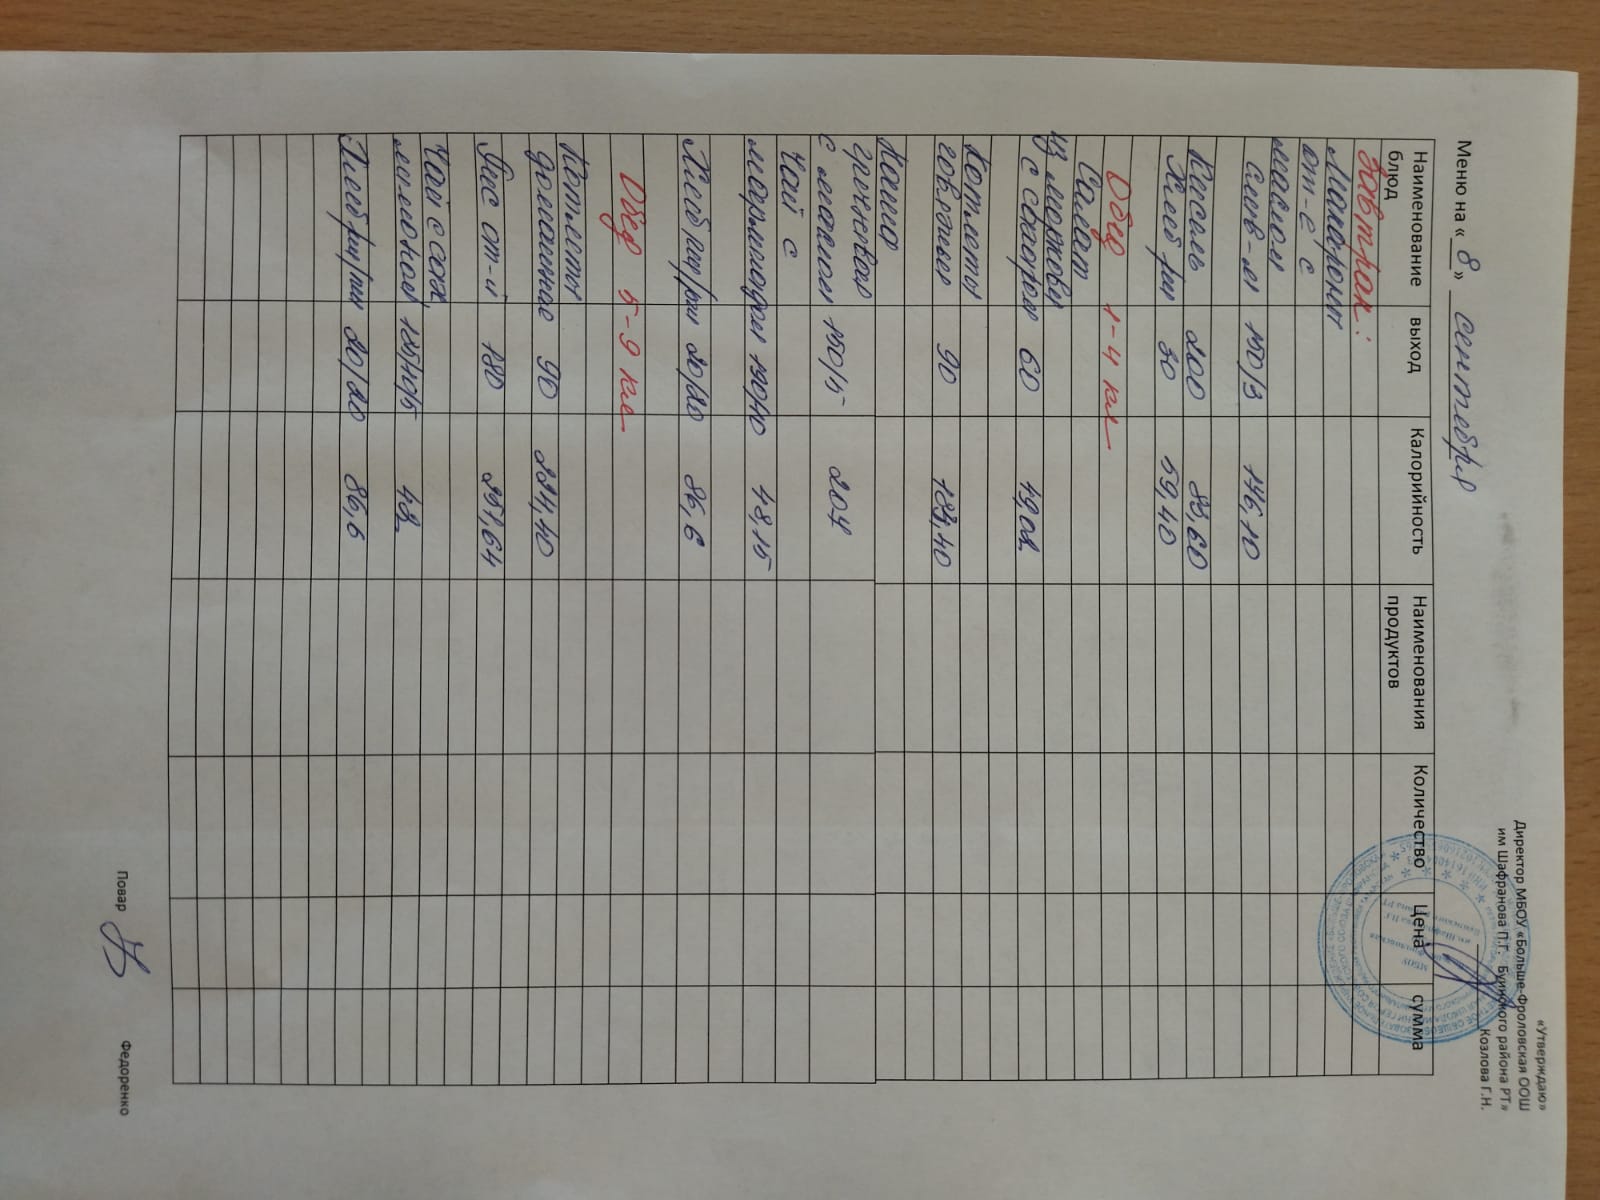 «Утверждаю»
Директор МБОУ «Больше-Фроловская ООШ
им Шафранова П.Г. Буинского района РТ»
Козлова Г.Н.
Меню на « 8 » сентября
Наименование блюд выход Калорийность Наименования продуктов Количество Цена сумма
Завтрак:
Макароны
от-е с
маслом
слив-м 150/3 146,10
Кисель 200 83,60
Хлеб рж 30 59,40
Обед 1-4 кл
Салат
из моркови
с сахаром 60 49,02
Котлеты
говяжьи 90 183,40
Каша
гречневая
с маслом 150/5 207
Чай с
мармеладом 190/10 48,15
Хлеб пш/рж 20/20 86,6
Обед 5-9 кл
Котлеты
домашние 90 224,40
Рис от-й 180 251,64
Чай с сах
молоком 185/10/5 42
Хлеб рж/пш 20/20 86,6
Повар Федоренко